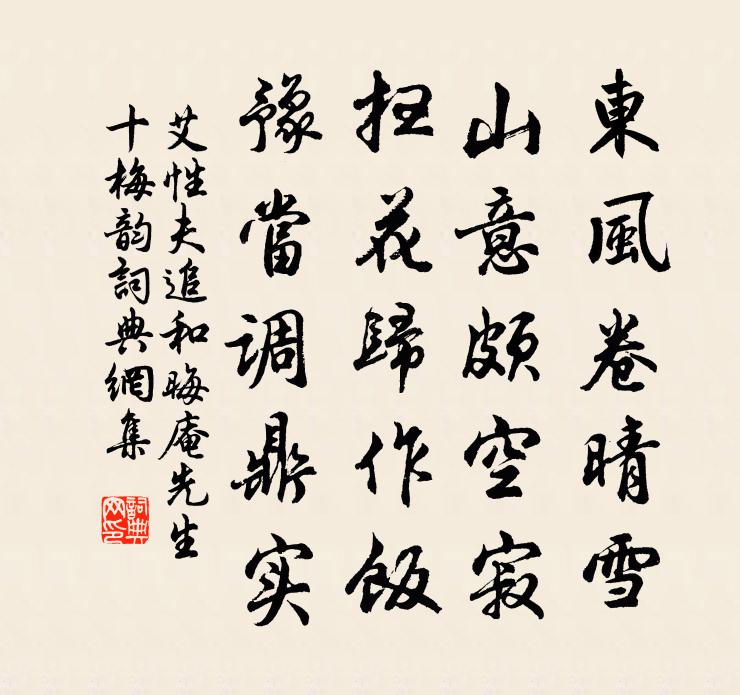 東風卷晴雪
山意頗空寂
扫花歸作飯
豫當調鼎实
艾性夫追和晦庵先生
十梅韵詞典網集
詞典
网印